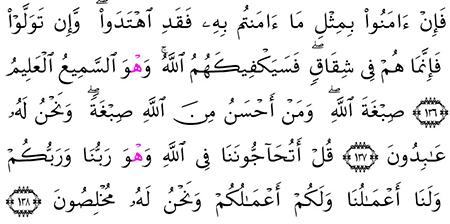 فَإِنْ ءَامَنُوا۟ بِمِثْلِ مَا ءَامَنتُم بِهِۦ فَقَدِ ٱهْتَدَوا۟ ۖ وَّإِن تَوَلَّوْا۟
فَإِنَّمَا هُمْ فِى شِقَاقٍ ۖ فَسَيَكْفِيكَهُمُ ٱللَّهُ ۚ وَهْوَ ٱلسَّمِيعُ ٱلْعَلِيمُ
﴿١٣٦﴾ صِبْغَةَ ٱللَّهِ ۖ وَمَنْ أَحْسَنُ مِنَ ٱللَّهِ صِبْغَةً ۖ وَنَحْنُ لَهُۥ
عَٰبِدُونَ ﴿١٣٧﴾ قُلْ أَتُحَآجُّونَنَا فِى ٱللَّهِ وَهْوَ رَبُّنَا وَرَبُّكُمْ
وَلَنَآ أَعْمَٰلُنَا وَلَكُمْ أَعْمَٰلُكُمْ وَنَحْنُ لَهُۥ مُخْلِصُونَ ﴿١٣٨﴾